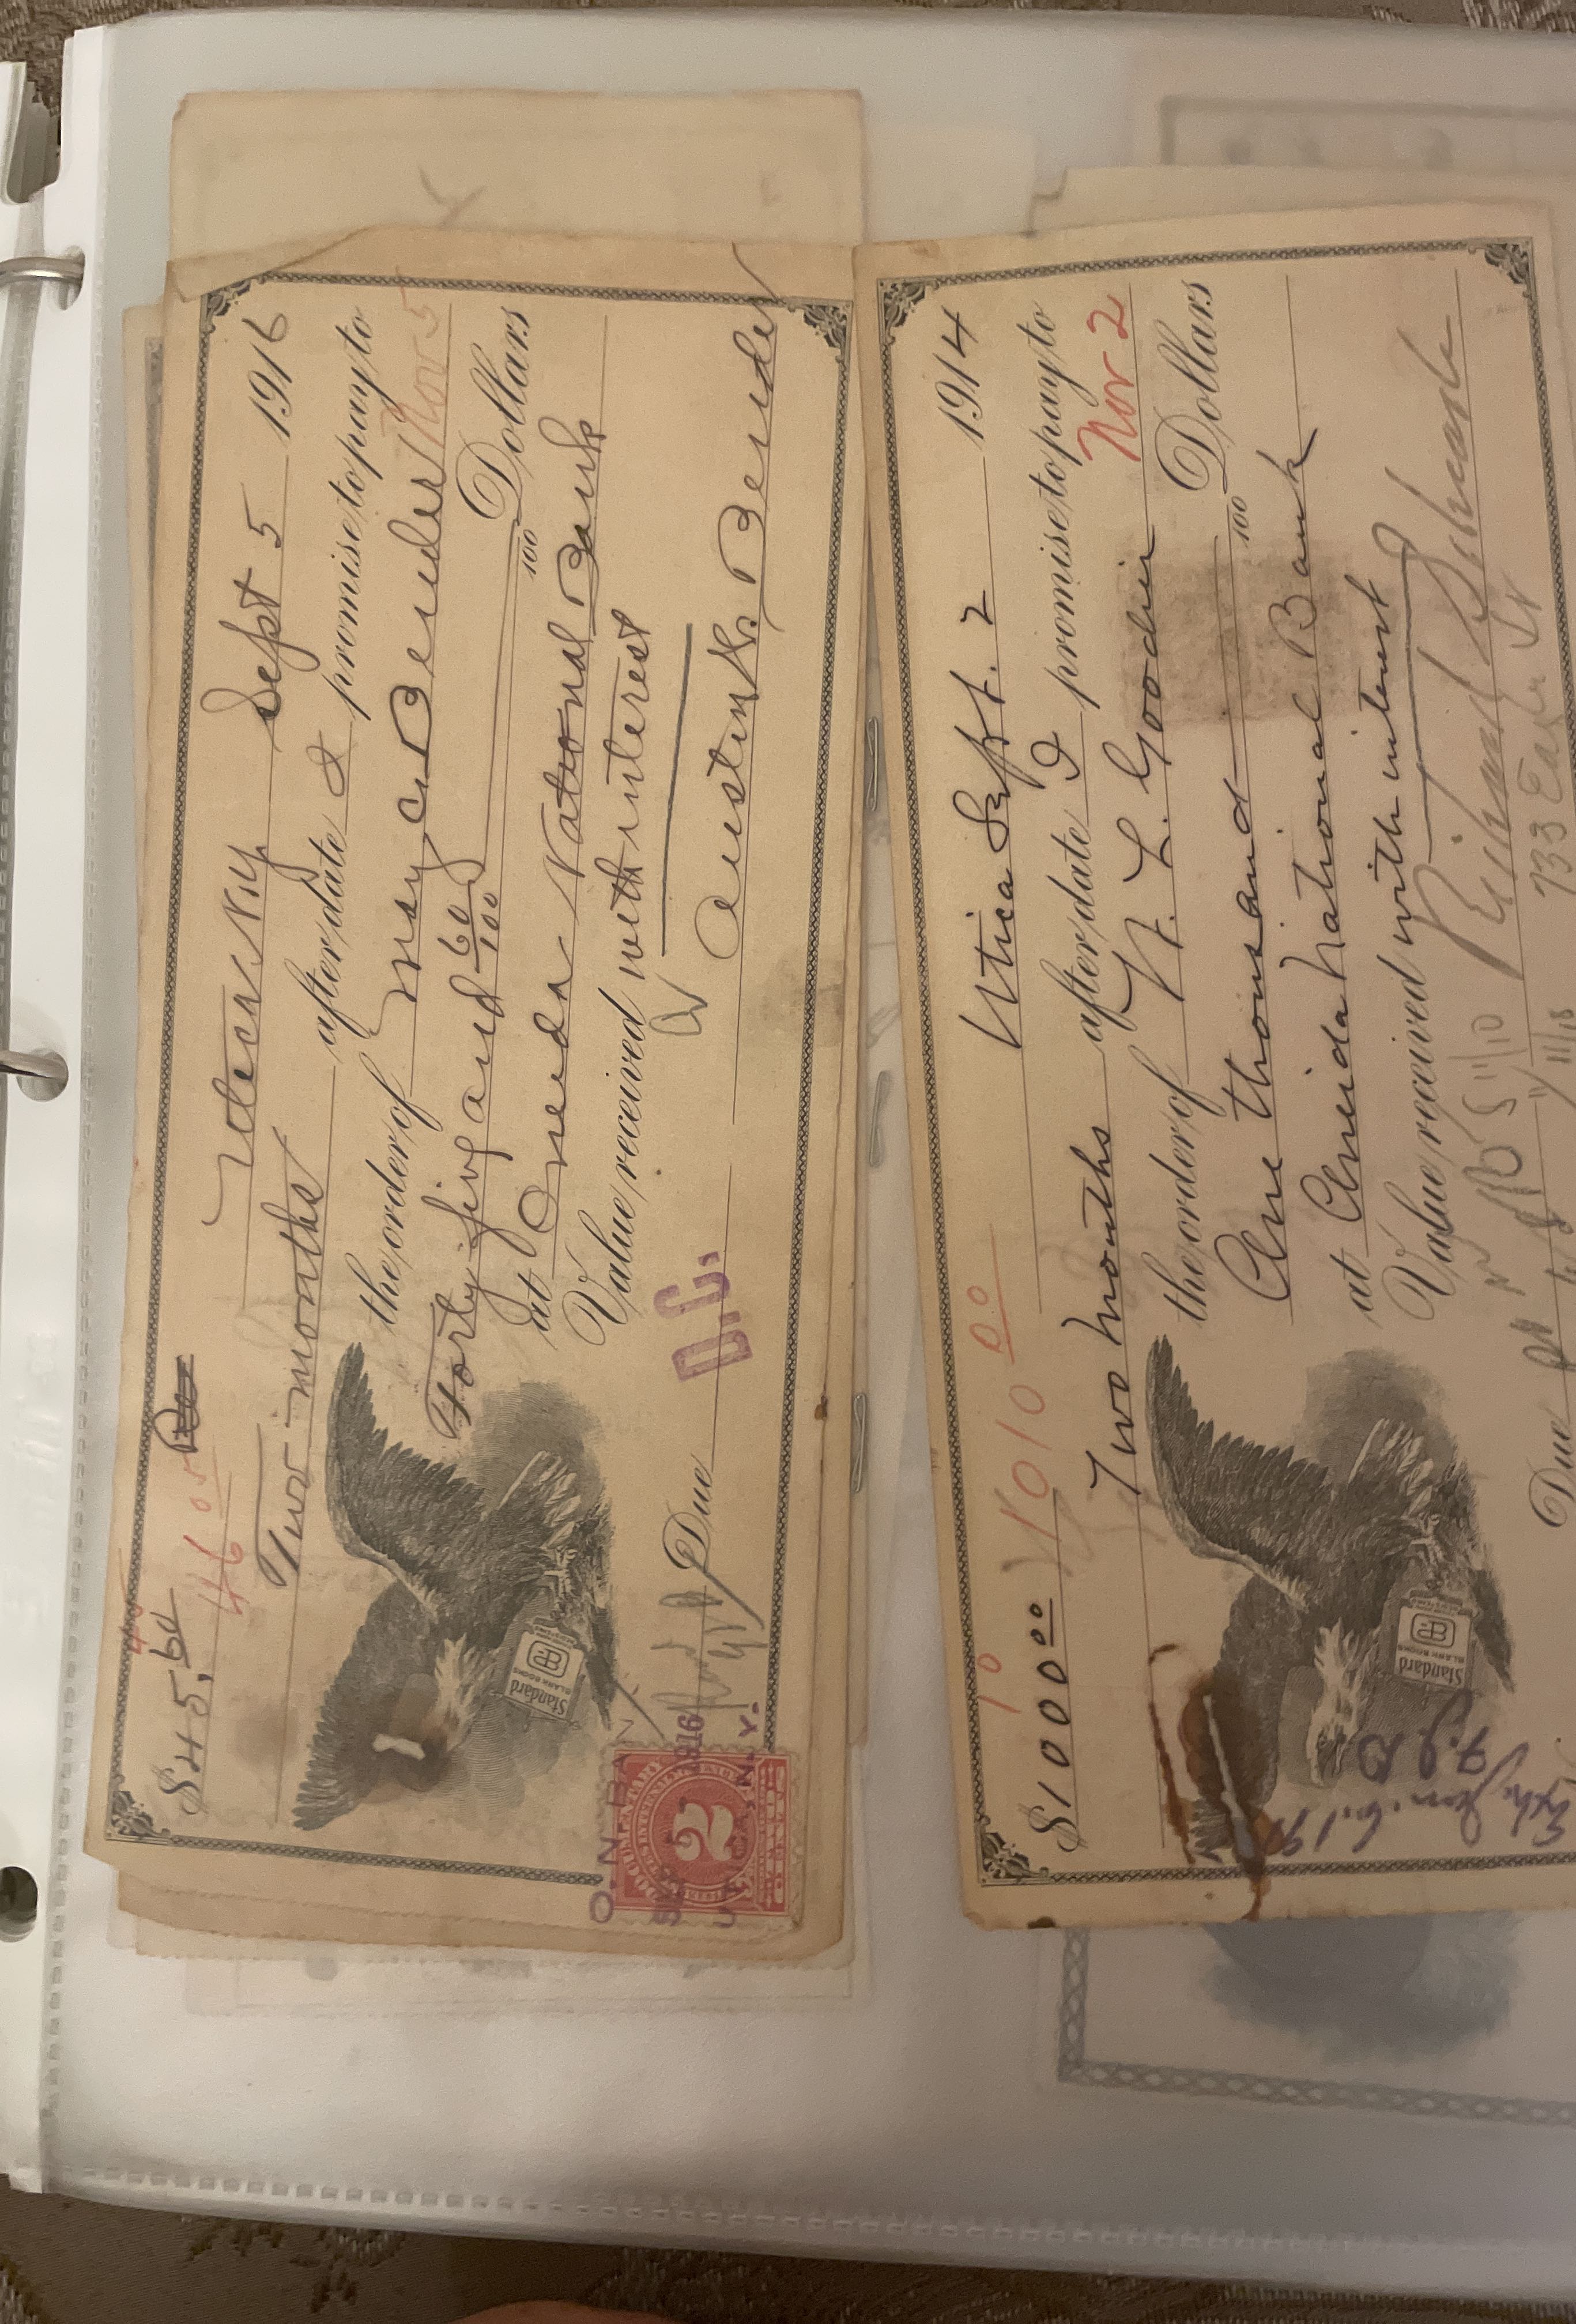 $45.60
46 05
Utica N.Y. Sept 5 1916
Two months after date I promise to pay to
the order of May C. Bender Nov 5
Forty five and 60/100 100 Dollars
at Oneida National Bank
Value received with interest
D.C.
Due Austin K. Bender
O. N. BAN
SEP 5 1916
UTICA, N.Y.
2
Standard
BLANK BOOKS
10
$1000 00
1010 00
Utica Sept. 2 1914
Two months after date I promise to pay to
the order of W. L. Goodier Nov 2
One thousand 100 Dollars
at Oneida National Bank
Value received with interest
Richard
Due
733 Jr
11/10
11/18
Standard
BLANK BOOKS